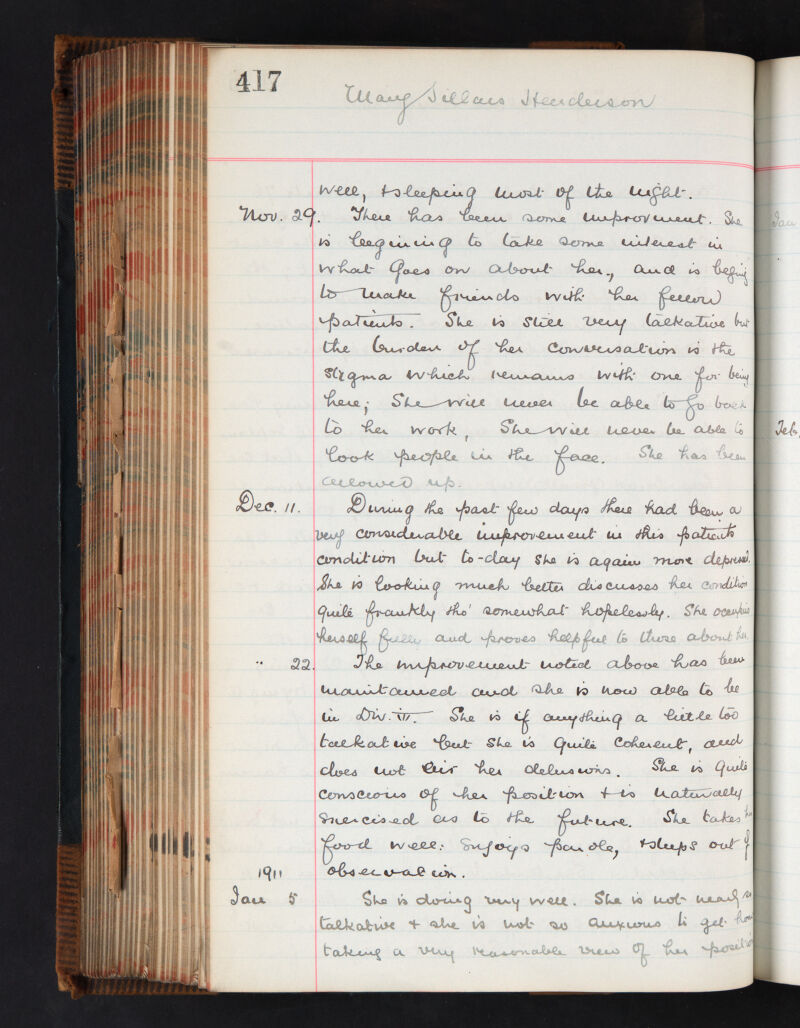 417
Mary Sillars Henderson
well, & sleeping most of the night.
Nov. 29. There has been some improvement. She
is begining to take some interest in
what goes on about her, and is begining
to make friends with her fellow
patients. She is still very talkative but
the burden of her conversation is the
stigma which remains with one for being
here; She will never be able to go back
to her work, She will never be able to
look people in the face. She has been
allowed up.
Dec. 11. During the past few days there had been a
very considerable improvement in this patients
condition but to-day she is again more depressed.
She is looking much better discusses her condition
quite frankly tho' somewhat hopelessly. She occupies
herself fully and proves helpful to those about her.
" 22. The improvement noted above has been
maintained and she is now able to be
in Div. III. She is if anything a little too
talkative but she is quite coherent, and
does not air her delusions. She is quite
conscious of her position & is naturally
exercised as to the future. She takes her
food well: enjoys parole, & sleeps out of
1911 observation.
Jan 5 She is doing very well. She is not nearly so
talkative & she is not so anxious to get home
taking a very reasonable view of her position
Jan
Feb.